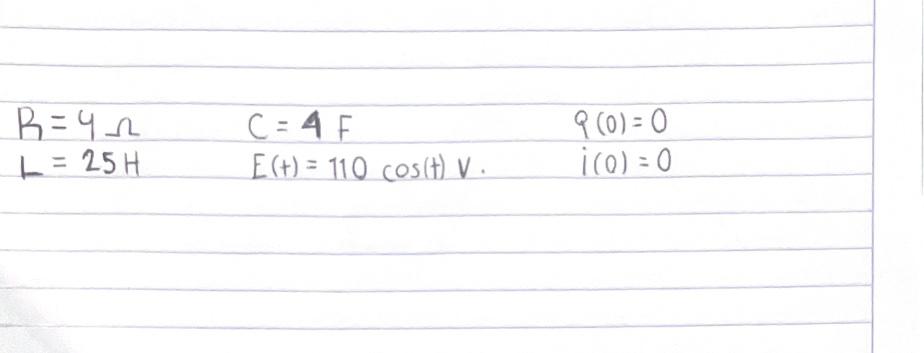 R = 4 Ω C = 4 F q(0) = 0
L = 25 H E(t) = 110 cos(t) V. i(0) = 0